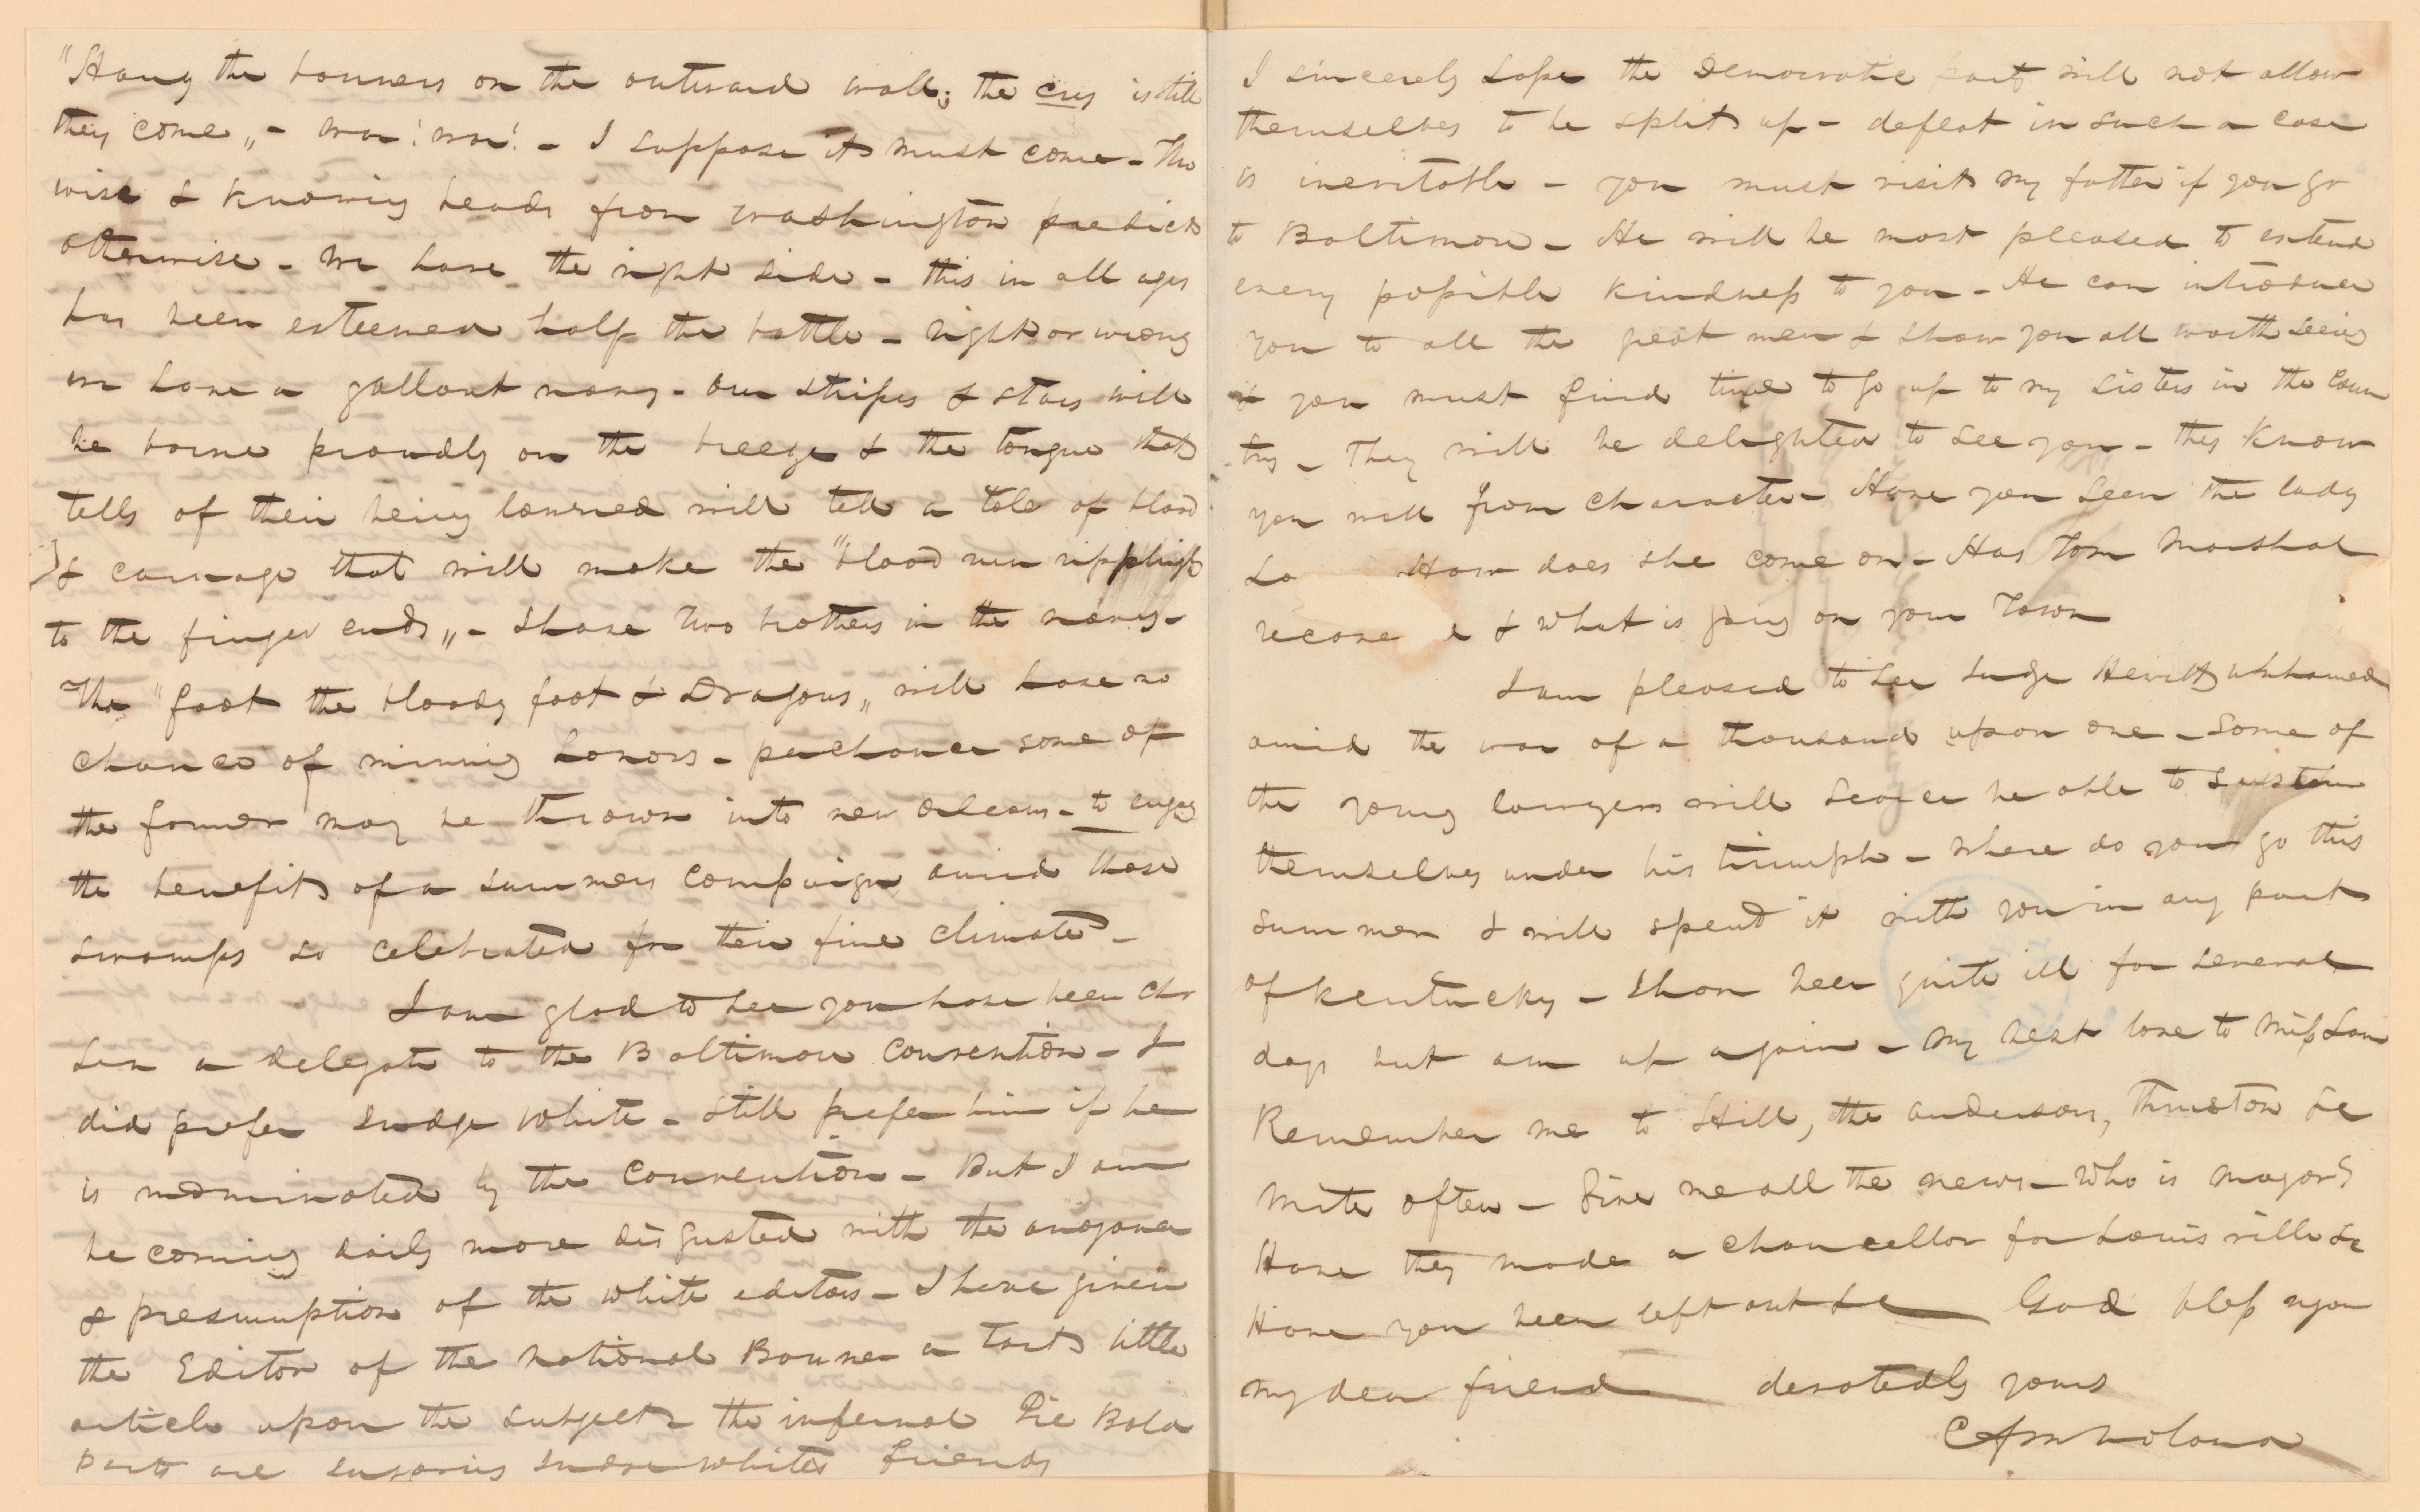 "Hang the banners on the outward wall; the cry is still
they come,, - war! war! - I suppose it must come - The
wise & knowing heads from Washington predict
otherwise - We have the right side - this in all ages
has been esteemed half the battle - right or wrong
we have a gallant navy - our stripes & stars will
be borne proudly on the breeze & the tongue that
tells of their being lowered will tell a tale of blood
& carnage that will make the "blood run rippling
to the finger ends,, - I have two brothers in the navy -
The "foot the bloody foot & Dragons,, will have no
chance of winning honors - perchance some of
the former may be thrown into new Orleans - to enjoy
the benefits of a summers campaign amid those
swamps so celebrated for their fine climate -
I am glad to see you have been cho
sen a delegate to the Baltimore Convention - I
did prefer Judge White - still prefer him if he
is nominated by the Convention - But I am
becoming daily more disgusted with the arrogance
& presumption of the White editors - I have given
the Editor of the National Banner a tart little
article upon the subject - the infernal Pie Bald
Party are Judge Whites friends
I sincerely hope the Democratic party will not allow
themselves to be split up - defeat in such a case
is inevitable - you must visit my father if you go
to Baltimore - He will be most pleased to extend
every possible kindness to you - He can introduce
you to all the great men & show you all worth seeing
& you must find time to go up to my sisters in the coun
try - They will be delighted to see you - they know
you well from character - Have you seen the lady
How does she come on - Has Tom Marshal
& what is going on your Town
I am pleased to see Judge Hewitt unharmed
amid the war of a thousand upon one - Some of
the young lawyers will scarce be able to sustain
themselves under his triumph - Where do you go this
summer I will spend it with you in any part
of Kentucky - I have been quite ill for several
days but am up again - My best love to Miss Lou
Remember me to Still, the Andersons, Thruston &c
Write often - Give me all the news - Who is mayor?
Have they made a chancellor for Louisville &c
Have you been left out &c God bless you
my dear friend devotedly yours